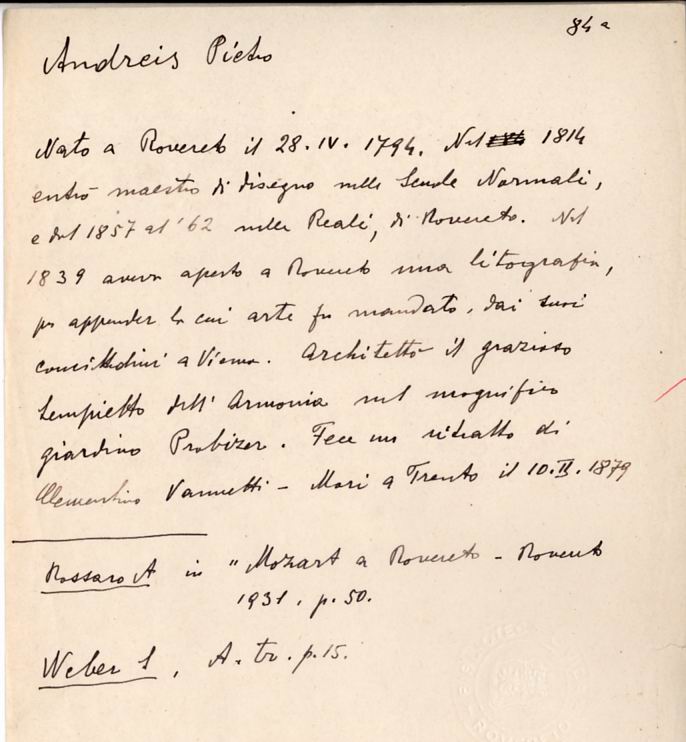 84a
Andreis Pietro
Nato a Rovereto il 28.IV.1794. Nel 1814
entrò maestro di disegno nelle Scuole Normali,
e dal 1857 al '62 nelle Reali, di Rovereto. Nel
1839 aveva aperto a Rovereto una litografia,
per apprender la cui arte fu mandato, dai suoi
concittadini a Vienna. Architettò il grazioso
tempietto dell'Armonia nel magnifico
giardino Probizer. Fece un ritratto di
Clementino Vannetti - Morì a Trento il 10.II.1879
Rossaro A in "Mozart a Rovereto - Rovereto
1931, p. 50.
Weber S, A. tr. p. 15.